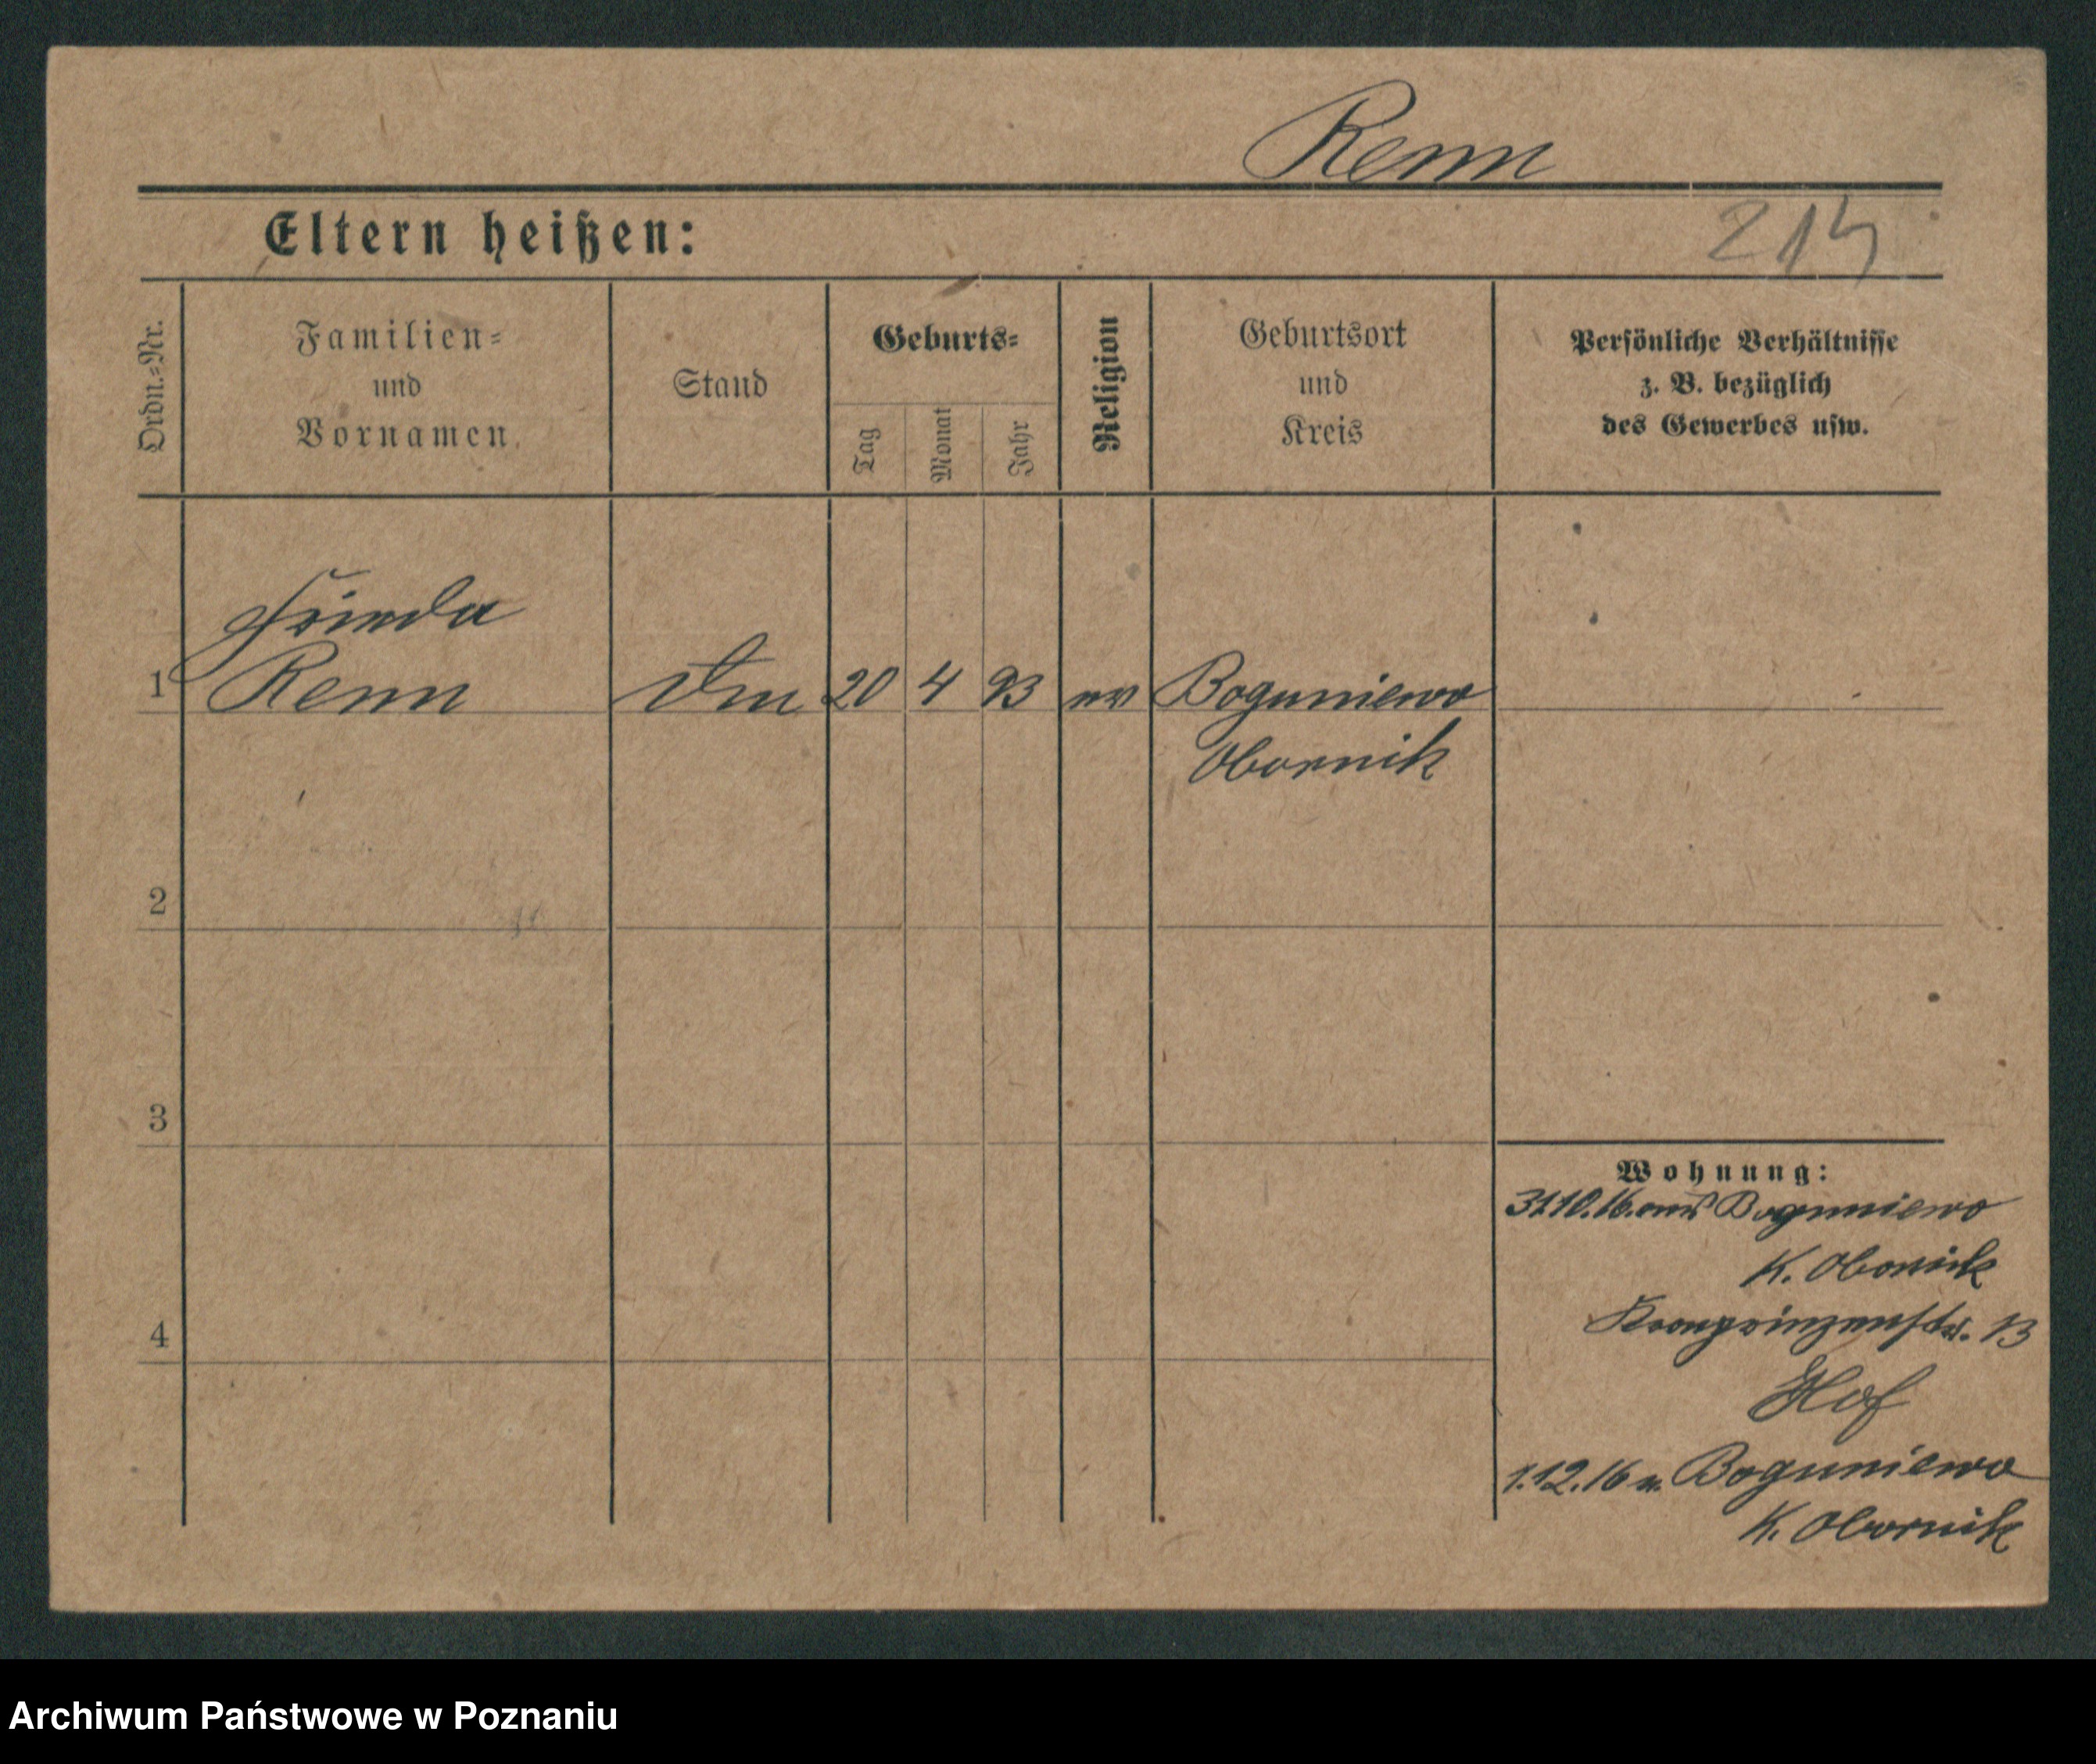 Renn
Eltern heißen:
214
Ordn.-Nr.
Familien-
und
Vornamen
Stand
Geburts-
Tag
Monat
Jahr
Religion
Geburtsort
und
Kreis
Persönliche Verhältnisse
z. B. bezüglich
des Gewerbes usw.
Frieda
1 Renn 20 4 93 ev Boguniewo
Obornik
2
3
4
Wohnung:
31.10.16. aus Boguniewo
K. Obornik
Kronprinzenstr. 13
Hof
1.12.16 n. Boguniewo
K. Obornik
Archiwum Państwowe w Poznaniu